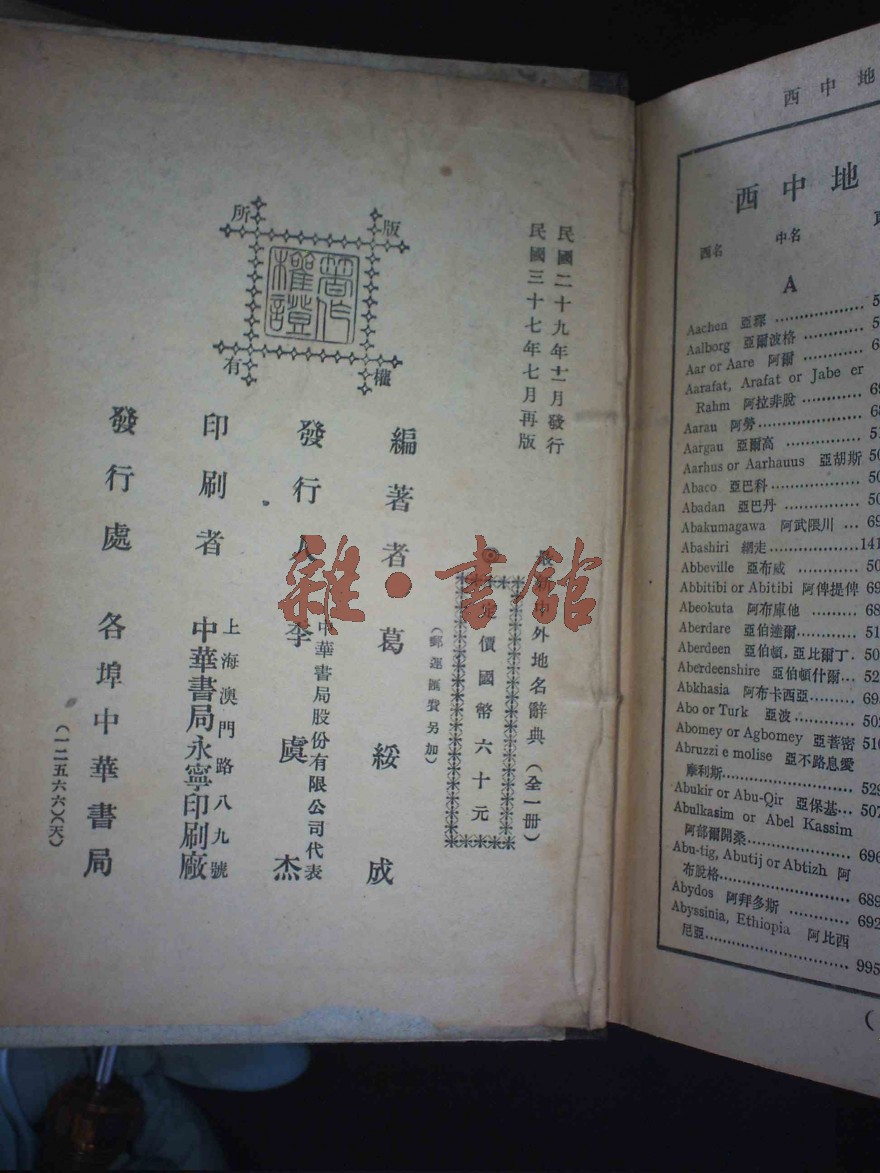 民國二十九年十一月發行
民國三十七年七月再版
最新中外地名辭典（全一册）
◎定價國幣六十元
（郵運匯費另加）
編著者 葛綏成
發行人 李虞杰
中華書局股份有限公司代表
印刷者 中華書局永寧印刷廠
上海澳門路八九號
發行處 各埠中華書局
（一二五六六）（天）
版權所有
著作權證
雜·書館
西中地
西中地
西名 中名
A
Aachen 亞琛
Aalborg 亞爾波格
Aar or Aare 阿爾
Aarafat, Arafat or Jabe er
Rahm 阿拉非脫
Aarau 阿勞
Aargau 亞爾高
Aarhus or Aarhauus 亞胡斯
Abaco 亞巴科
Abadan 亞巴丹
Abakumagawa 阿武隈川
Abashiri 網走 141
Abbeville 亞布威
Abbitibi or Abitibi 阿俾提俾
Abeokuta 阿布庫他
Aberdare 亞伯達爾
Aberdeen 亞伯頓，亞比爾丁
Aberdeenshire 亞伯頓什爾
Abkhasia 阿布卡西亞
Abo or Turk 亞波
Abomey or Agbomey 亞菩密
Abruzzi e molise 亞不路息愛
摩利斯 529
Abukir or Abu-Qir 亞保基 507
Abulkasim or Abel Kassim
阿部爾開桑 696
Abu-tig, Abutij or Abtizh 阿
布說格 689
Abydos 阿拜多斯 692
Abyssinia, Ethiopia 阿比西
尼亞 995
(